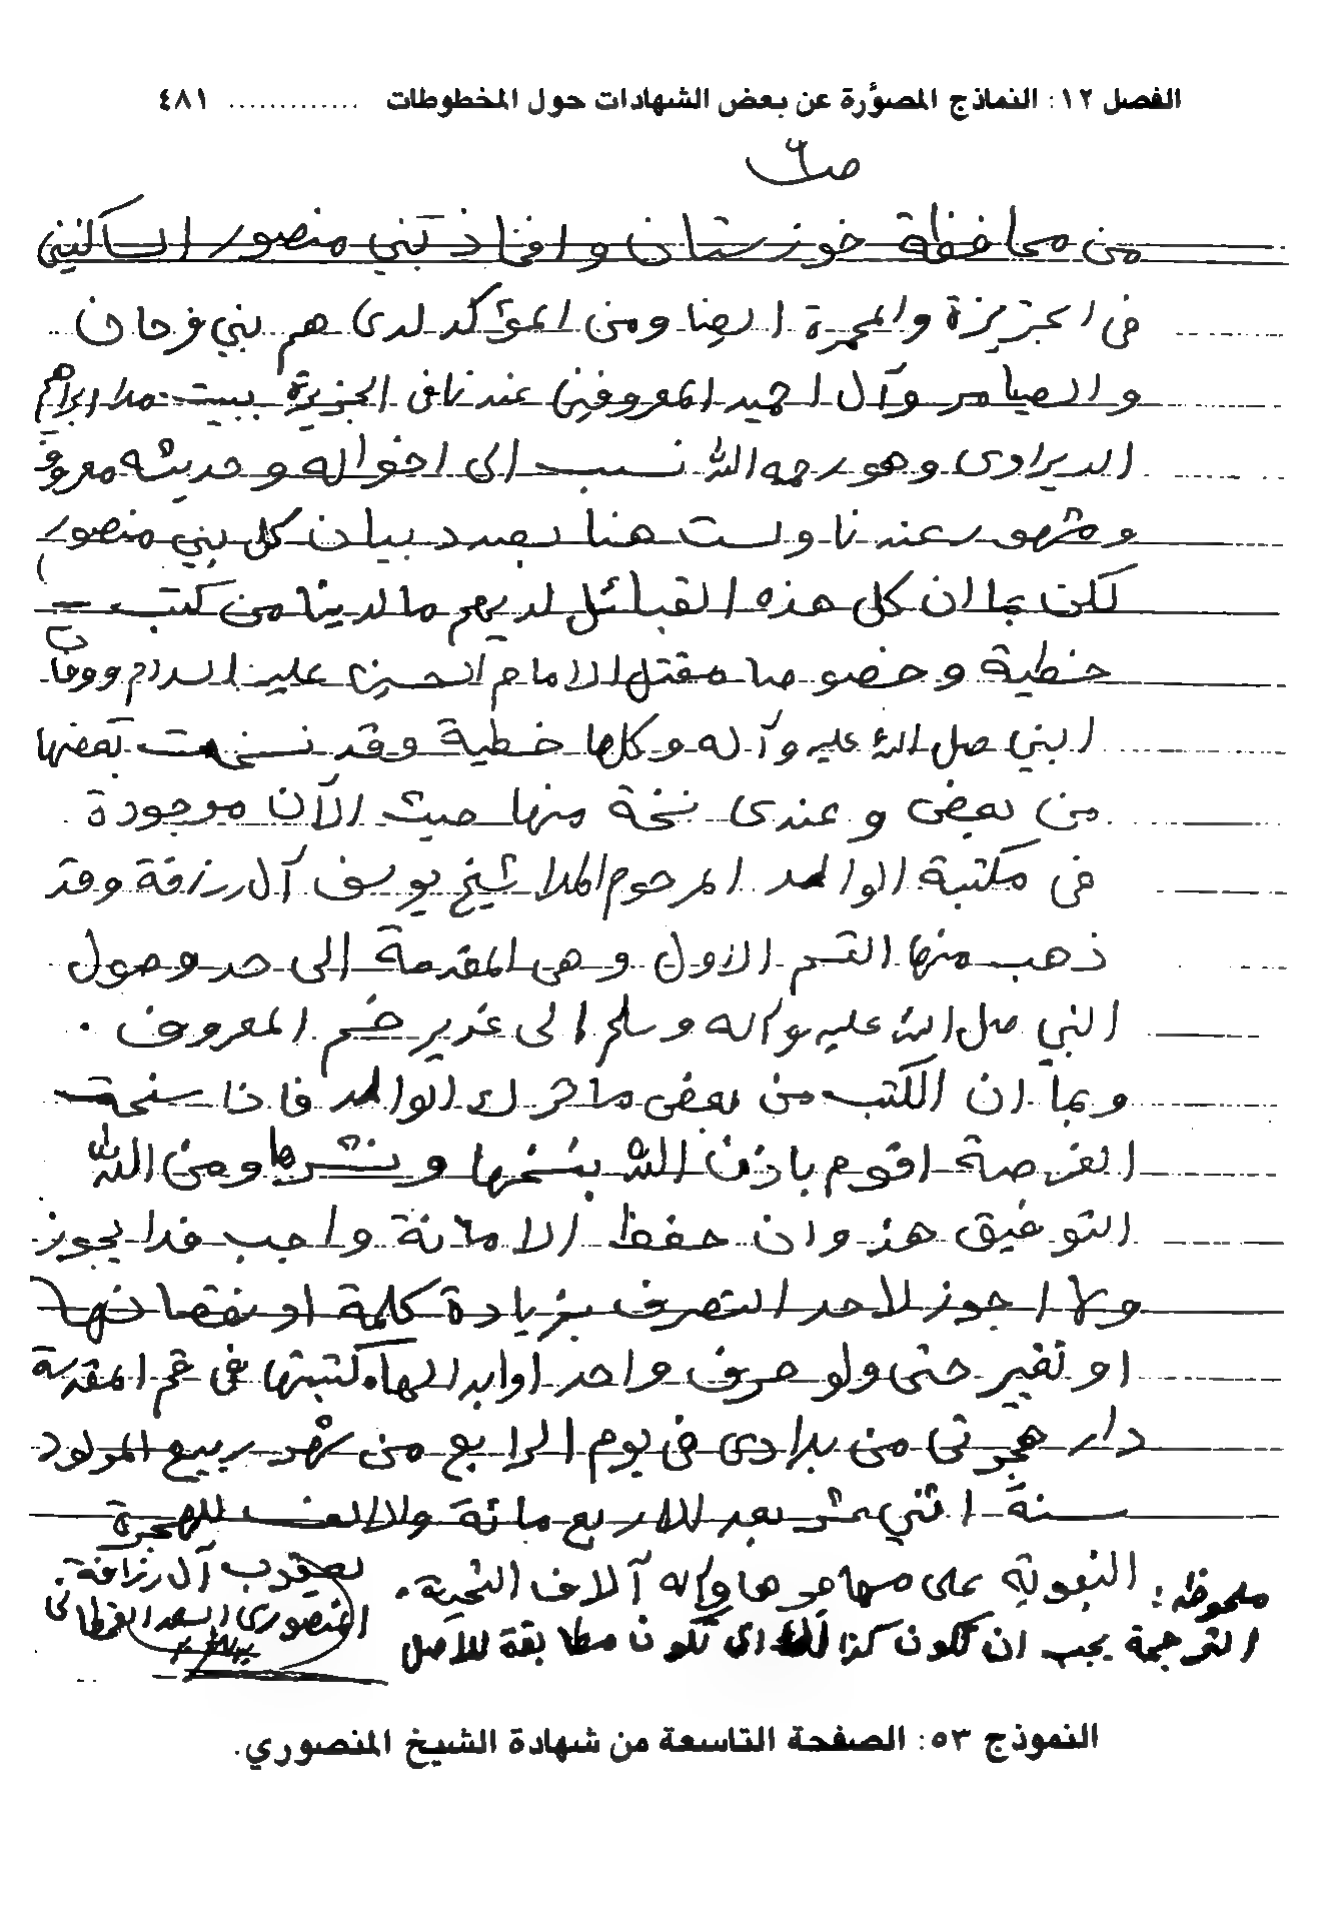 الفصل ١٢: النماذج المصوَّرة عن بعض الشهادات حول المخطوطات ............. ٤٨١
ص٩
من محافظة خوزستان وافخاذ بني منصور الساكنين
في الجزيزة والمحمرة ايضا ومن المؤكد لدى هم بني فرحان
والصيامر وآل احميد المعروفين عندنا في الجزيرة ببيت ملا ابراهيم
الديراوي وهو رحمه الله نسب الى اخواله وحديثه معروف
ومشهور عندنا ولست هنا بصدد بيان كل بني منصور
لكن بما ان كل هذه القبائل لديهم مالدينا من كتب
خطية وخصوصا مقتل الامام الحسين عليه السلام ووفات
البني صل الله عليه وآله وكلها خطية وقد نسخت بعضها
من بعض وعندي نسخة منها حيث الآن موجودة
في مكتبة الوالد المرحوم الملا شيخ يوسف آل رزاقة وقد
ذهب منها القسم الاول وهي المقدمة الى حد وصول
النبي صل الله عليه واله وسلم الى غدير خم المعروف .
وبما ان الكتب من بعض ما ترك الوالد فاذا سنحت
الفرصة اقوم باذن الله بنسخها ونشرها ومن الله
التوفيق هذ وان حفظ الامانة واجب فلا يجوز
ولا اجوز لاحد التصرف بزيادة كلمة او نقصانها
او تغيير حتى ولو حرف واحد او ابدالها كتبتها في قم المقدسة
دار هجرتي من بلادي في يوم الرابع من شهر ربيع المولود
سنة اثني عشر بعد الاربع مائة والالف للهجرة
النبوية على مهاجرها واله آلاف التحية .
يعقوب آل رزاقة
المنصوري السعد القحطاني
ملحوظه :
الترجمة يجب ان تكون كذالك اي تكون مطابقة للاصل
النموذج ٥٣: الصفحة التاسعة من شهادة الشيخ المنصوري.